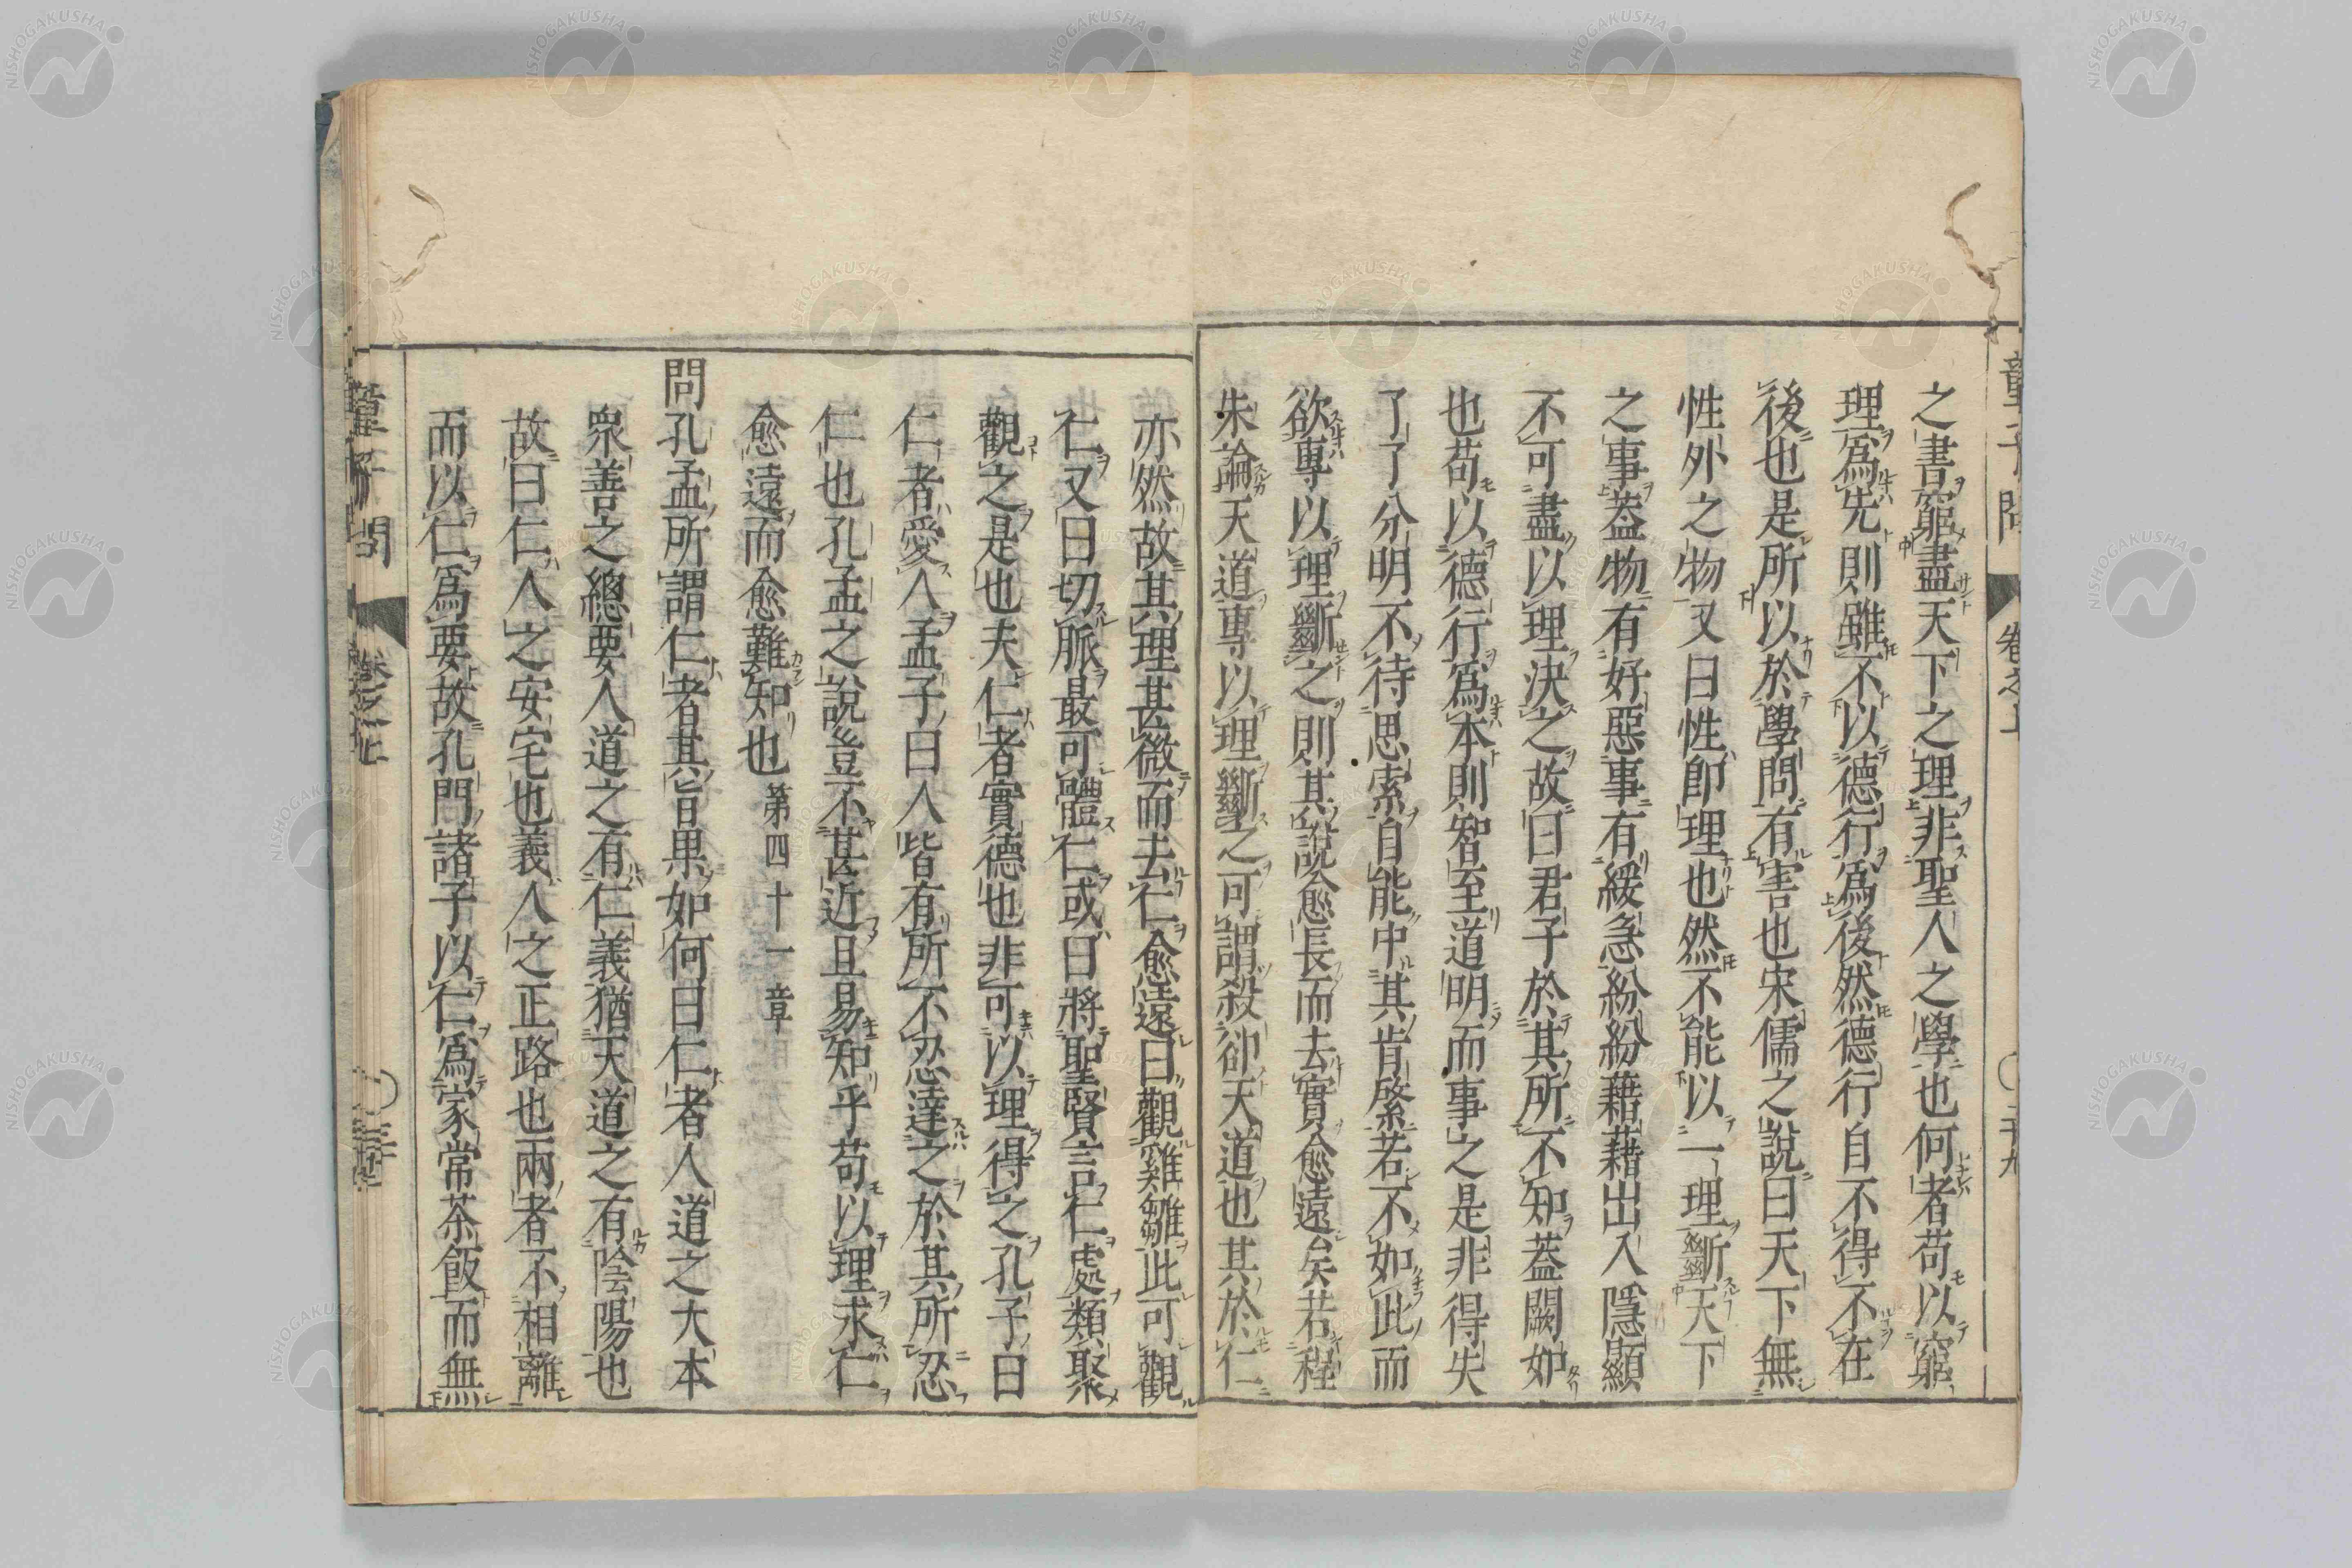 之書窮盡天下之理非聖人之學也何者苟以窮
理爲先則雖不以德行爲後然德行自不得不在
後也是所以於學問有害也宋儒之說曰天下無
性外之物又曰性卽理也然不能以一理斷天下
之事葢物有好惡事有緩急紛紛藉藉出入隱顯
不可盡以理決之故曰君子於其所不知葢闕如
也苟以德行爲本則智至道明而事之是非得失
了了分明不待思索自能中其肯綮若不如此而
欲專以理斷之則其說愈長而去實愈遠矣若程
朱論天道專以理斷之可謂殺卻天道也其於仁
亦然故其理甚微而去仁愈遠曰觀雞雛此可觀
仁又曰切脈最可體仁或曰將聖賢言仁處類聚
觀之是也夫仁者實德也非可以理得之孔子曰
仁者愛人孟子曰人皆有所不忍達之於其所忍
仁也孔孟之說豈不甚近且易知乎苟以理求仁
愈遠而愈難知也 第四十一章
問孔孟所謂仁者其旨果如何曰仁者人道之大本
衆善之總要人道之有仁義猶天道之有陰陽也
故曰仁人之安宅也義人之正路也兩者不相離
而以仁爲要故孔門諸子以仁爲家常茶飯而無
童子問
童子問 卷之上 二十九